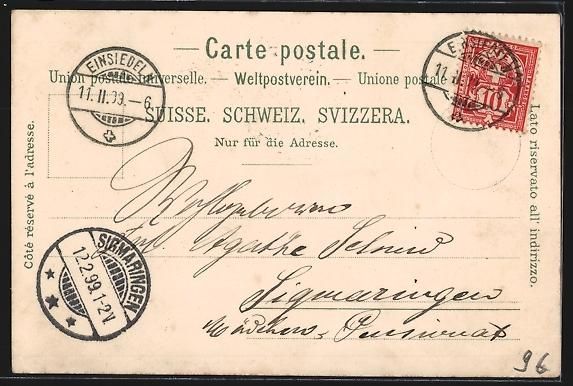 Carte postale.
Union postale universelle. — Weltpostverein. — Unione postale
SUISSE. SCHWEIZ. SVIZZERA.
Nur für die Adresse.
Côté réservé à l'adresse.
Lato riservato all' indirizzo.
EINSIEDEL
11. II. 99. – 6
11. II.
10
Wohlgeboren
Agathe
Sigmaringen
Mädchen-Pensionat
SIGMARINGEN
12.2.99.1-2V.
96